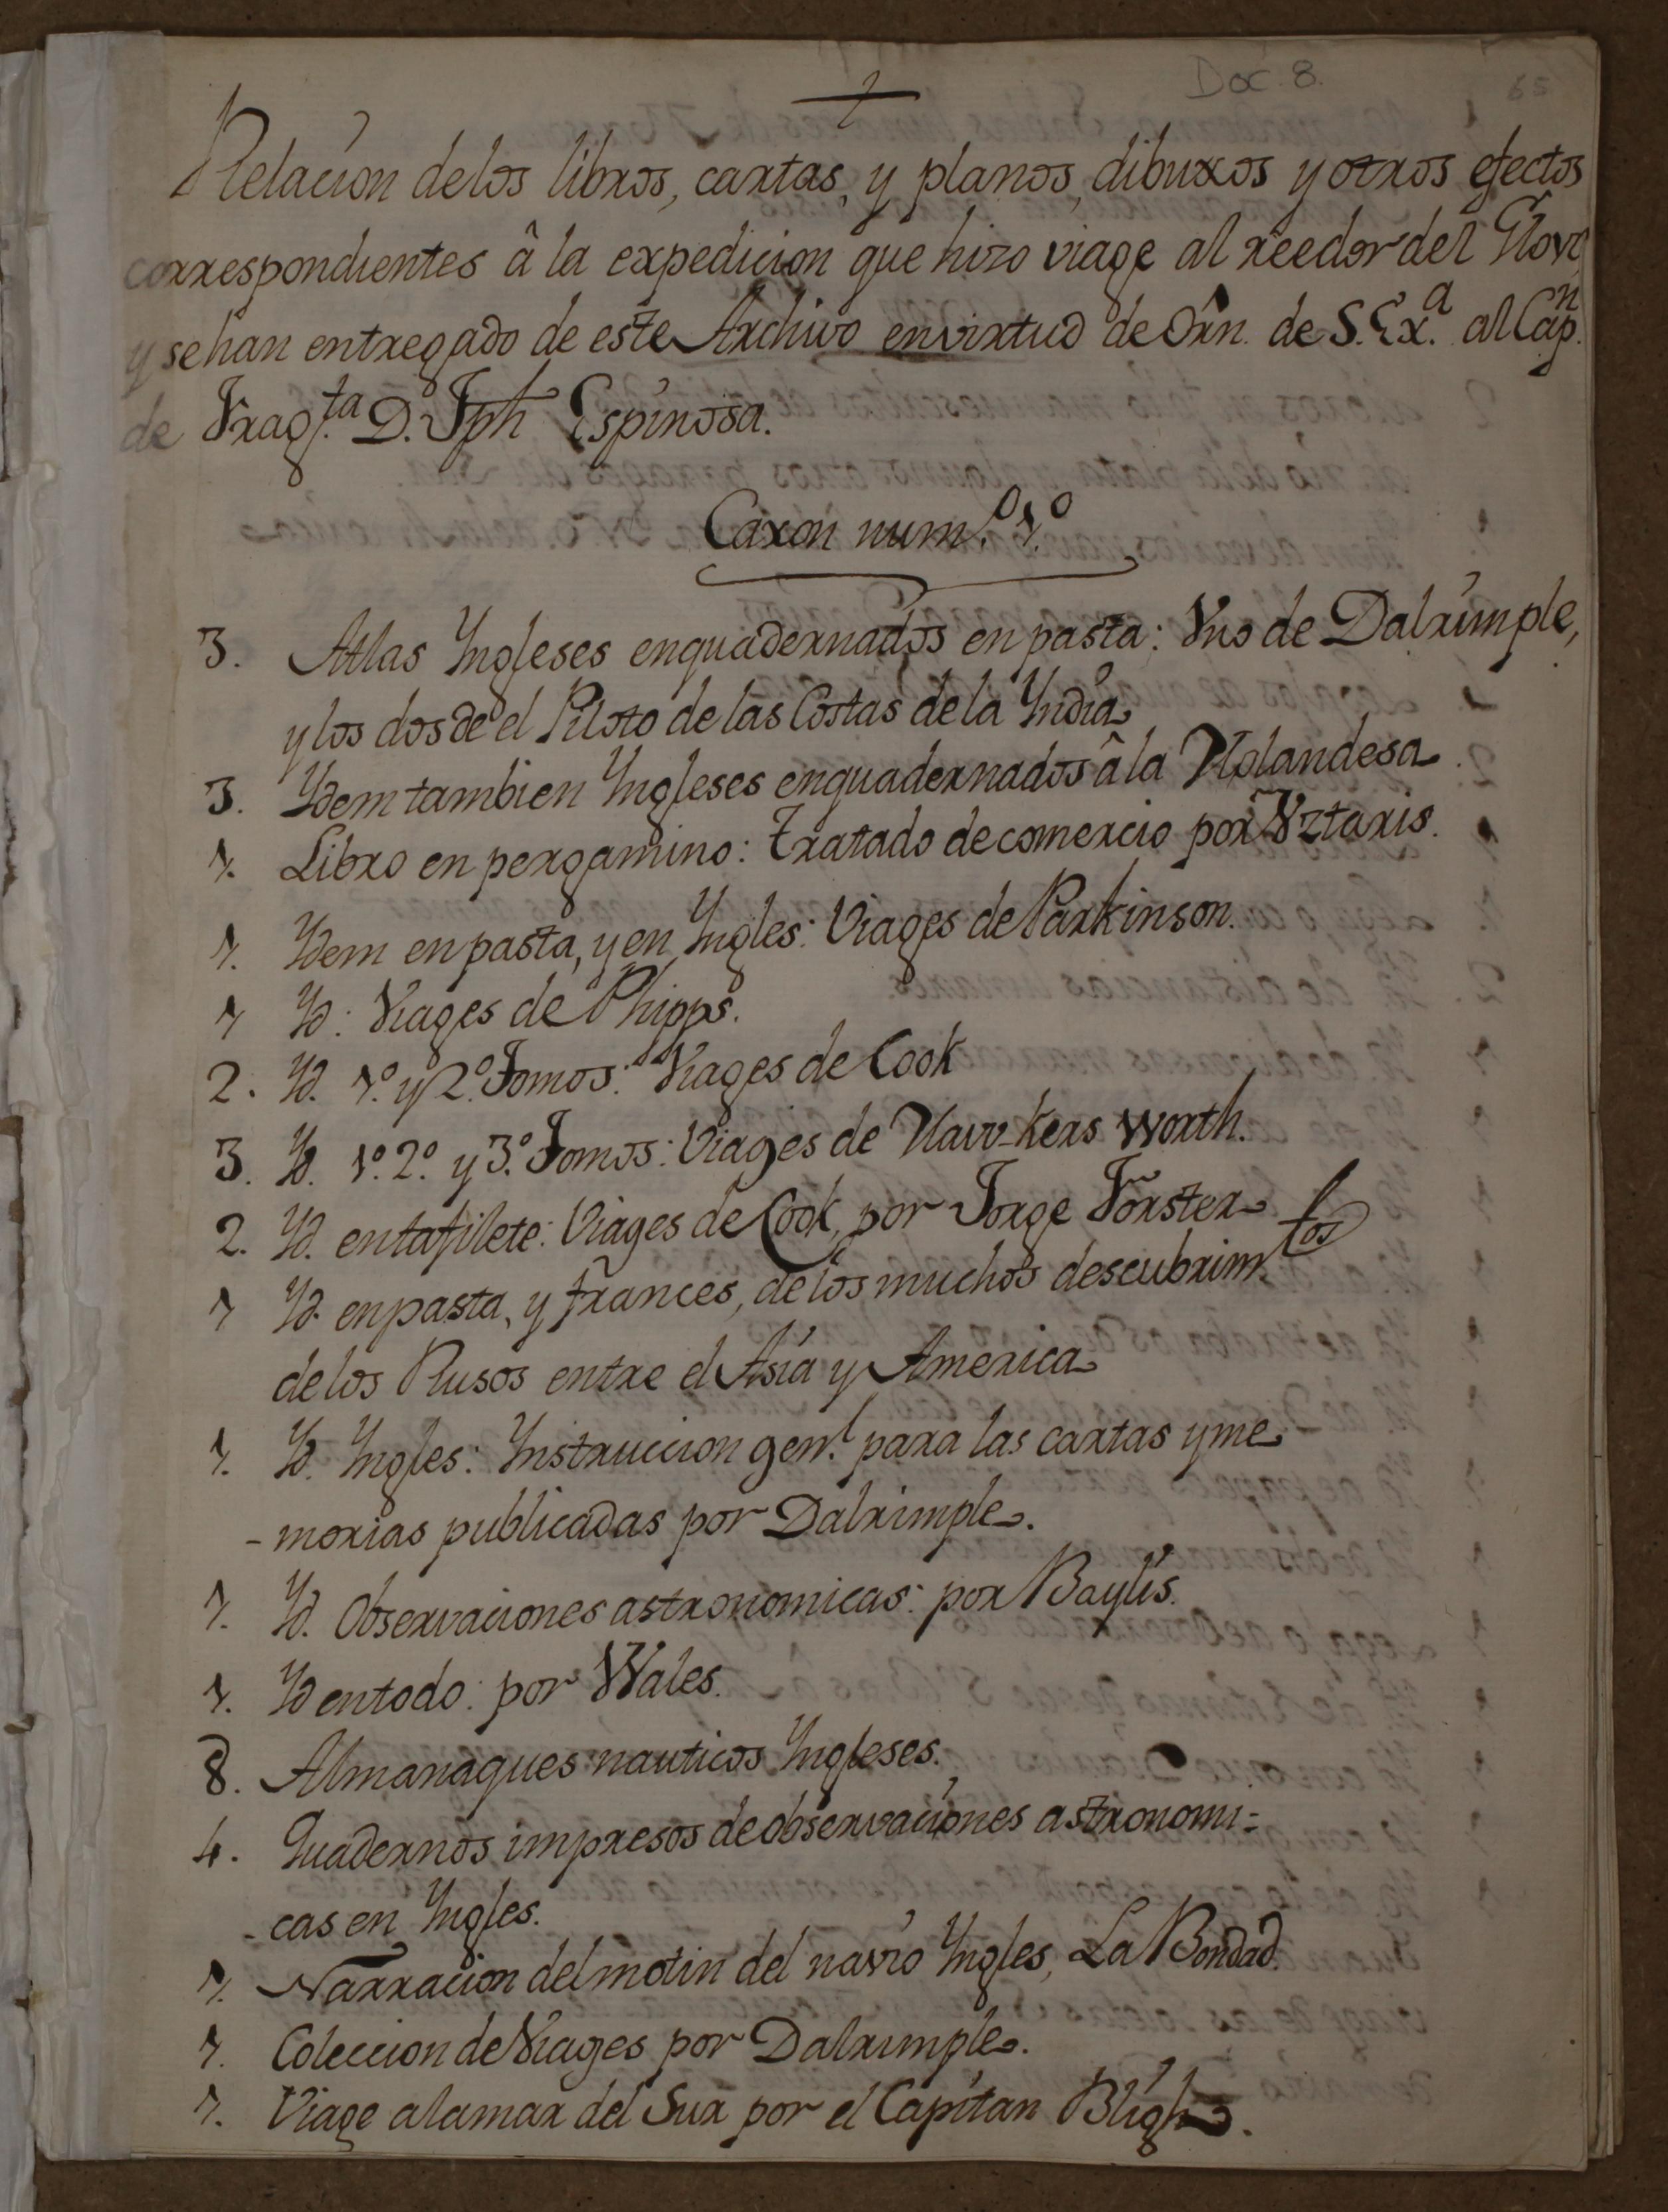 Doc. 8.
65
Relacion delos libros, cartas, y planos, dibuxos y otros efectos
correspondientes â la expedicion que hizo viage al rêedor del Glovo
y sehan entregado de este Archivo envirtud de Orn. de S. Ex.ª al Cap.n
de Frag.ta D. Jph Espinosa.
Caxon num.º 1.º
3. Atlas Yngleses enquadernados en pasta: Vno de Dalrimple,
y los dos de el Piloto de las Costas de la Yndia
3. Ydem tambien Yngleses enquadernados â la Holandesa.
1. Libro en pergamino: tratado de comercio por Vztaris.
1. Ydem en pasta, y en Yngles: Viages de Parkinson.
1 Yd: Viages de Phipps.
2. Yd. 1.º y 2.º Tomos: Viages de Cook
3. Yd. 1.º 2.º y 3.º Tomos: Viages de Haw-kers worth.
2. Yd. entafilete: Viages de Cook, por Jorge Forster
1 Yd. en pasta, y frances, de los muchos descubrim.tos
de los Rusos entre el Asia y America
1. Yd. Yngles: Ynstruccion gen.l para las cartas y me
-morias publicadas por Dalrimple.
1. Yd. Observaciones astronomicas: por Baylis.
1. Yd entodo: por Wales.
8. Almanaques nauticos Yngleses.
4. Quadernos impresos de observaciones astronomi=
-cas en Yngles.
1. Narracion del motin del navio Yngles, La Bondad.
1. Coleccion de Viages por Dalrimple.
1. Viage a la mar del Sur por el Capitan Bligh.